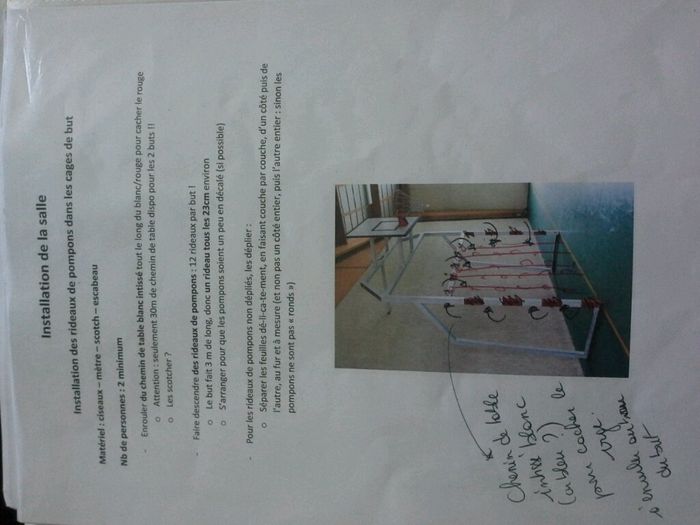 Installation de la salle
Installation des rideaux de pompons dans les cages de but
Matériel : ciseaux – mètre – scotch – escabeau
Nb de personnes : 2 minimum
- Enrouler du chemin de table blanc intissé tout le long du blanc/rouge pour cacher le rouge
o Attention : seulement 30m de chemin de table dispo pour les 2 buts !!
o Les scotcher ?
- Faire descendre des rideaux de pompons : 12 rideaux par but !
o Le but fait 3 m de long, donc un rideau tous les 23cm environ
o S'arranger pour que les pompons soient un peu en décalé (si possible)
- Pour les rideaux de pompons non dépliés, les déplier :
o Séparer les feuilles dé-li-ca-te-ment, en faisant couche par couche, d'un côté puis de
l'autre, au fur et à mesure (et non pas un côté entier, puis l'autre entier : sinon les
pompons ne sont pas « ronds »)
Chemin de table
intissé blanc
(ou bleu ?)
pour cacher le
rouge.
à enrouler autour
du but